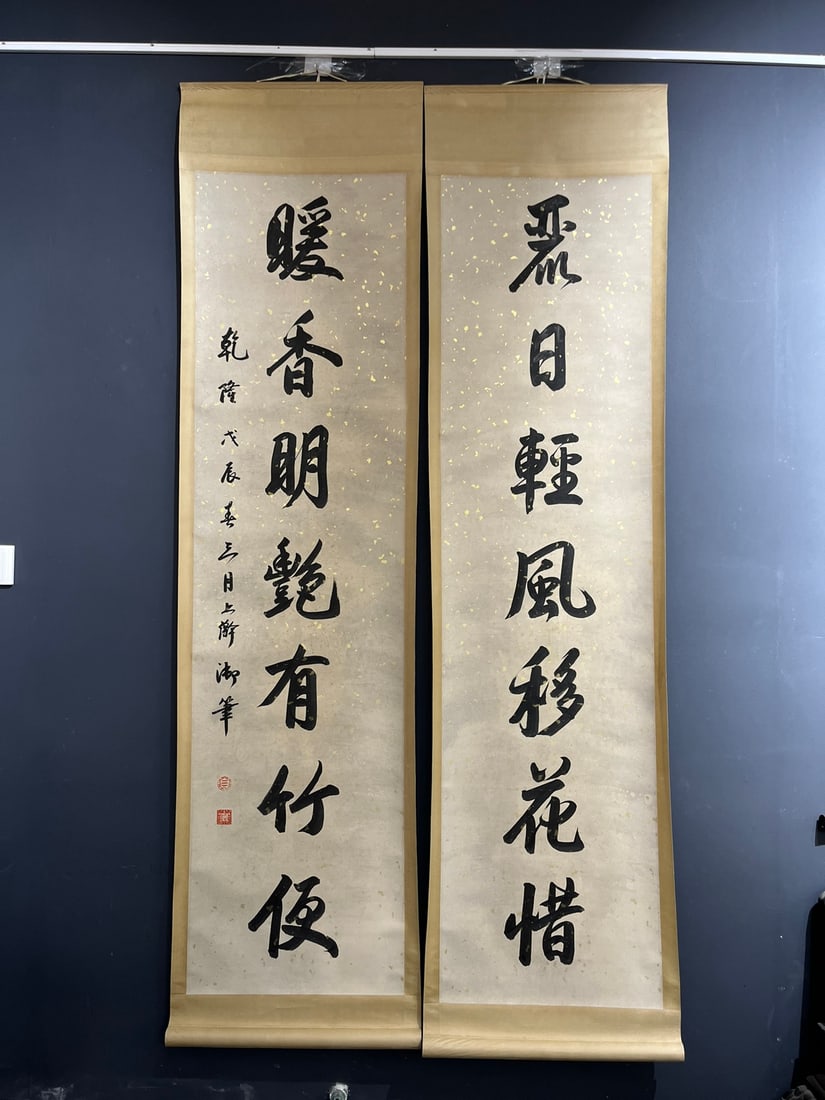 麗日輕風移花惜
暖香明艷有竹便
乾隆戊辰春三月上澣御筆